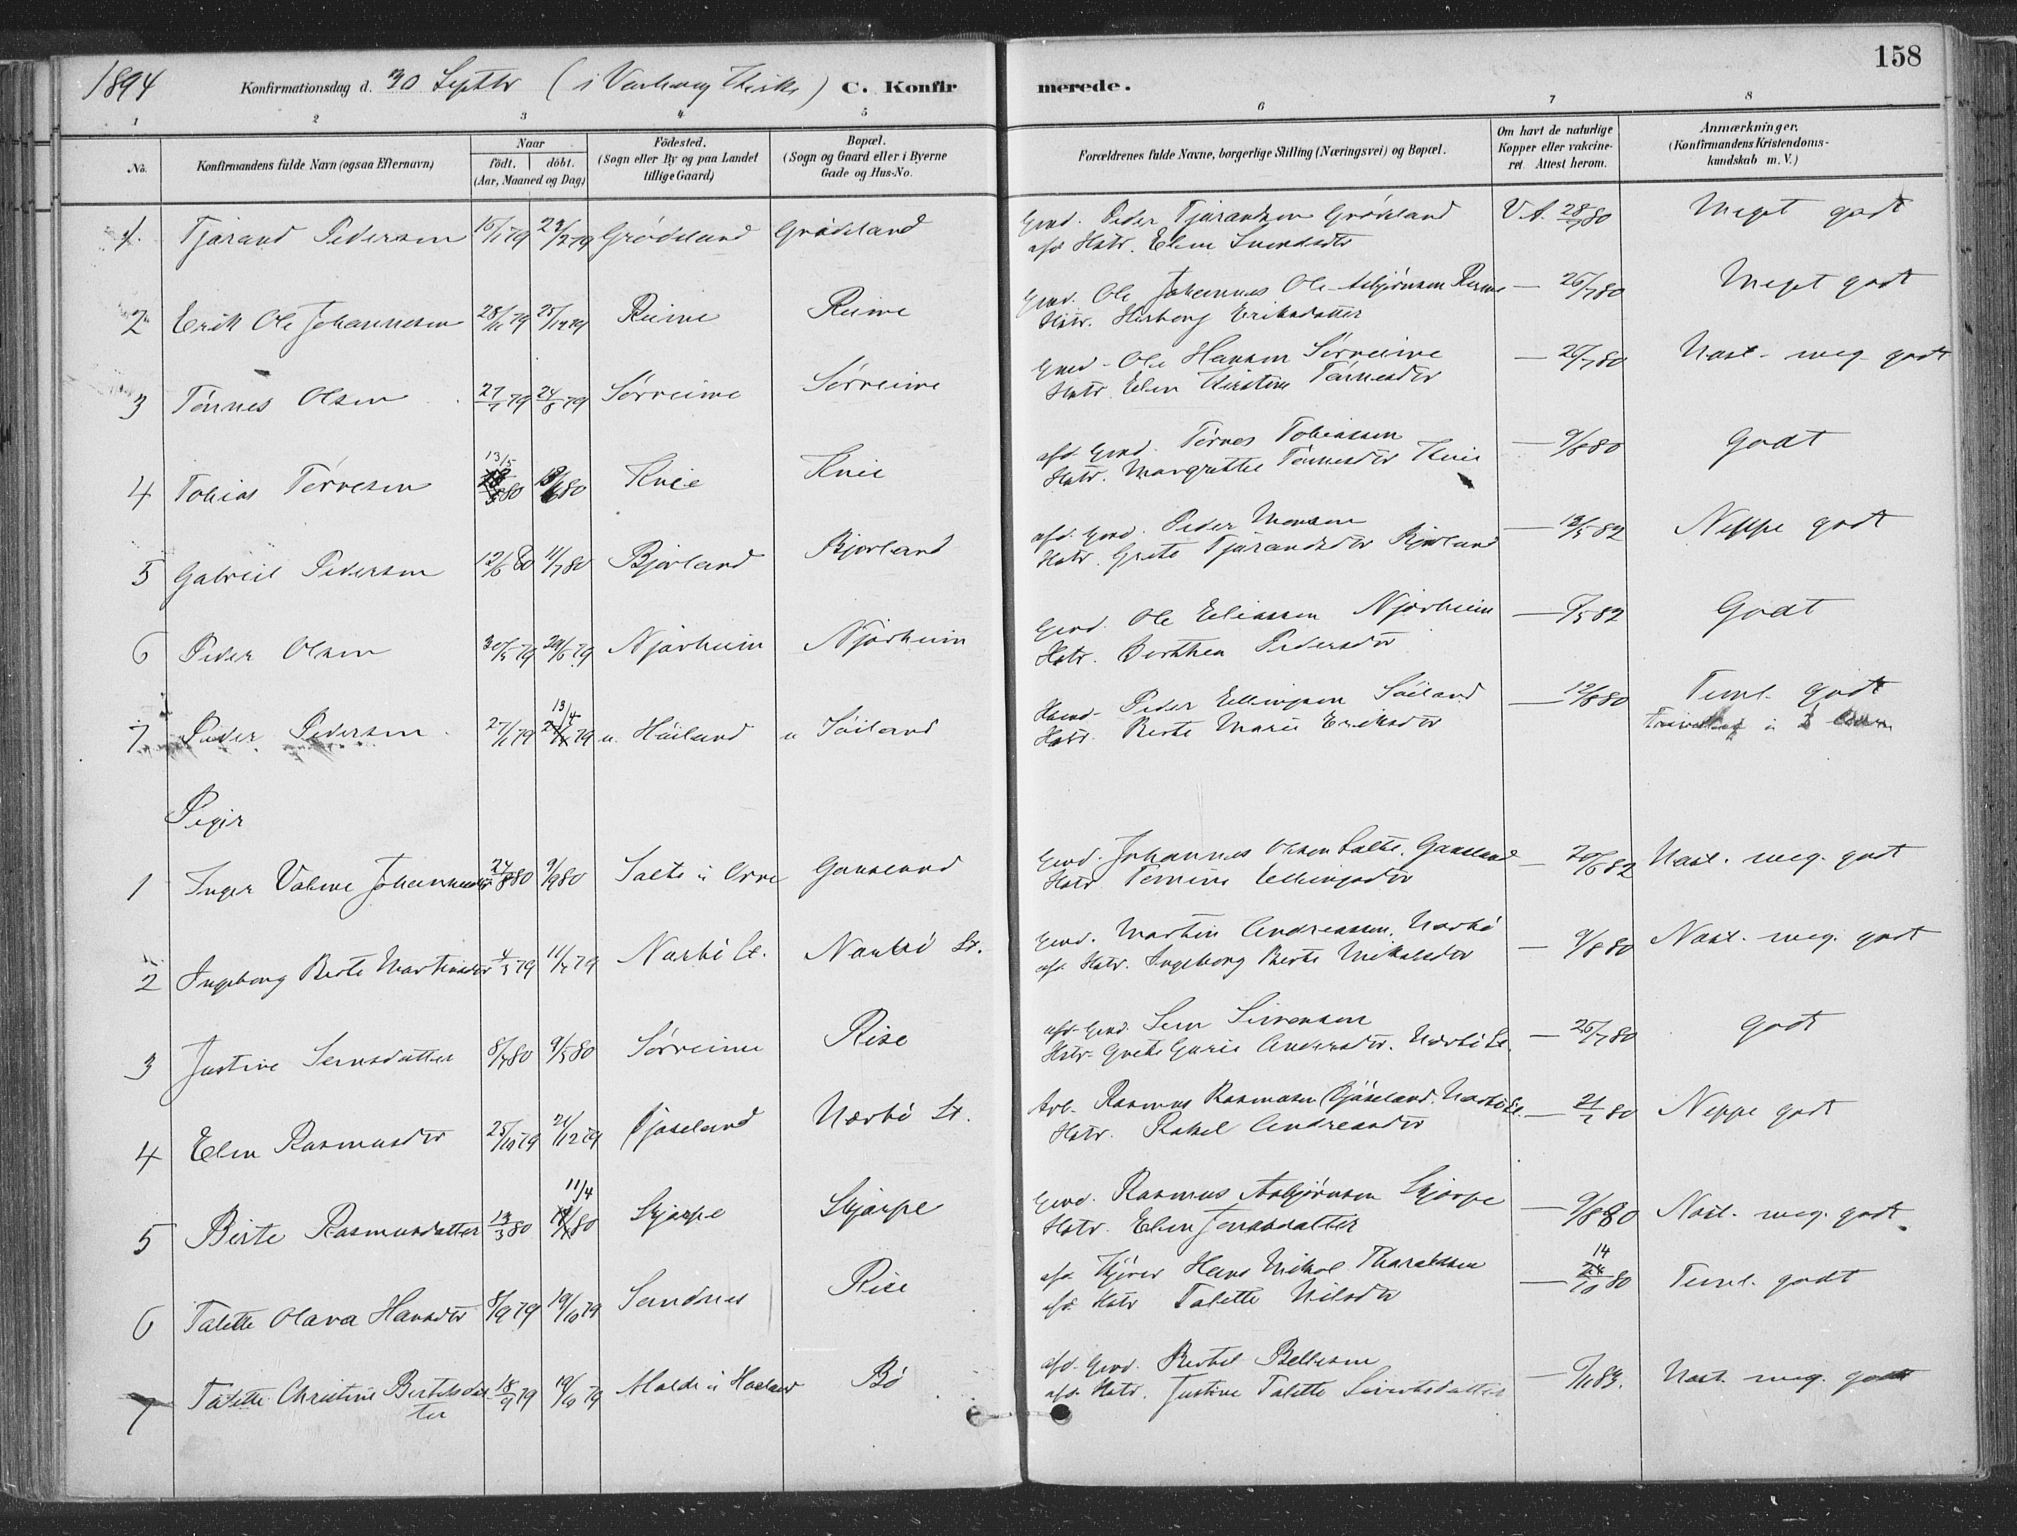 158
1894 Konfirmationsdag d. 30 Septbr (i Varhaug Kirke) C. Konfirmerede.
1 2 3 4 5 6 7 8
No. Konfirmandens fulde Navn (ogsaa Efternavn) Naar födt. döbt. (Aar, Maaned og Dag) Födested. (Sogn eller By og paa Landet tillige Gaard) Bopæl. (Sogn og Gaard eller i Byerne Gade og Hus-No. Forældrenes fulde Navne, borgerlige Stilling (Næringsvei) og Bopæl. Om havt de naturlige Kopper eller vakcineret. Attest herom. Anmærkninger. (Konfirmandens Kristendomskundskab m. V.)
1. Tjärand Pedersen 79 79 Grödeland Grödeland Gmd. Peder Tjärandsen Grödeland V. A. 28/7 80 Meget godt
afd. Hstr. Elen Svendsdtr
2 Erik Ole Johannesen 28/11 79 25/12 79 Reime Reime Gmd. Ole Johannes Ole Asbjørnsen Reime — 26/7 80 Meget godt
Hstr. Herborg Eriksdatter
3 Tönnes Olsen 27/7 79 24/8 79 Sörreime Sörreime Gmd. Ole Hansen Sörreime — 26/7 80 Nast. meg. godt
Hstr. Elen Kirstine Tönnesdtr
4 Tobias Törresen 13/5 80 80 Kvie Kvie afd. Gmd. Törres Tobiassen — 9/8 80 Godt
Hstr. Margrethe Tönnesdtr Kvie
5 Gabriel Pedersen 12/6 80 11/7 80 Bjorland Bjorland afd. Gmd. Peder Monsen — 13/5 82 Neppe godt
Hstr. Grete Tjärandsdtr Bjorland
6 Peder Olsen 30/5 79 29/6 79 Njärheim Njärheim Gmd. Ole Eliassen Njärheim — 82 Godt
Hstr. Berthea Pedersdtr
7 Peder Pedersen 27/1 79 13/4 79 u. Höiland u Söiland Peder Ellingsen Söiland — 12/8 80 Teml. godt
Hstr. Berte Marie Eriksdtr
Piger
1 Inger Valine Johannesdtr 24/8 80 9/9 80 Salte i Orre Gauseland Gmd. Johannes Olsen Salte. Gauseland — 82 Nast. meg. godt
Hstr Tomine Ellingsdtr
2 Ingeborg Berte Martinsdtr 4/3 79 11/4 79 Narbö St. Narbö St. Gmd. Martin Andreassen. Narbö — 9/8 80 Nast. meg. godt
afd. Hstr. Ingeborg Berte Mikalsdtr
3 Justine Semsdatter 8/4 80 9/5 80 Sörreime Rise afd. Gmd. Sem Simonsen — 26/7 80 Godt
Hstr. Grete Gurie Andersdtr. Nærbö St.
4 Elen Rasmusdtr 25/10 79 21/12 79 Tjåseland Nærbö St. Arb. Rasmus Rasmussen Tjåseland. Nærbö St — 21/7 80 Neppe godt
Hstr. Rakel Andreasdtr
5 Berte Rasmusdatter 13/3 80 11/4 80 Skjärpe Skjärpe Gmd. Rasmus Asbjörnsen Skjärpe — 9/8 80 Nast. meg. godt
Hstr. Elen Jonasdatter
6 Talette Olava Hansdtr 8/9 79 19/10 79 Sandnes Rise afd. Kjörer Hans Mikal Tharaldsen — 14 80 Teml. godt
afd. Hstr Talette Nilsdtr
7 Talette Christine Bertelsdatter 18/9 79 19/10 79 Malde i Haaland Bö afd. Gmd. Bertel Bellesen — 83. Nast. meg. godt
afd. Hstr. Justine Talette Sivertsdatter